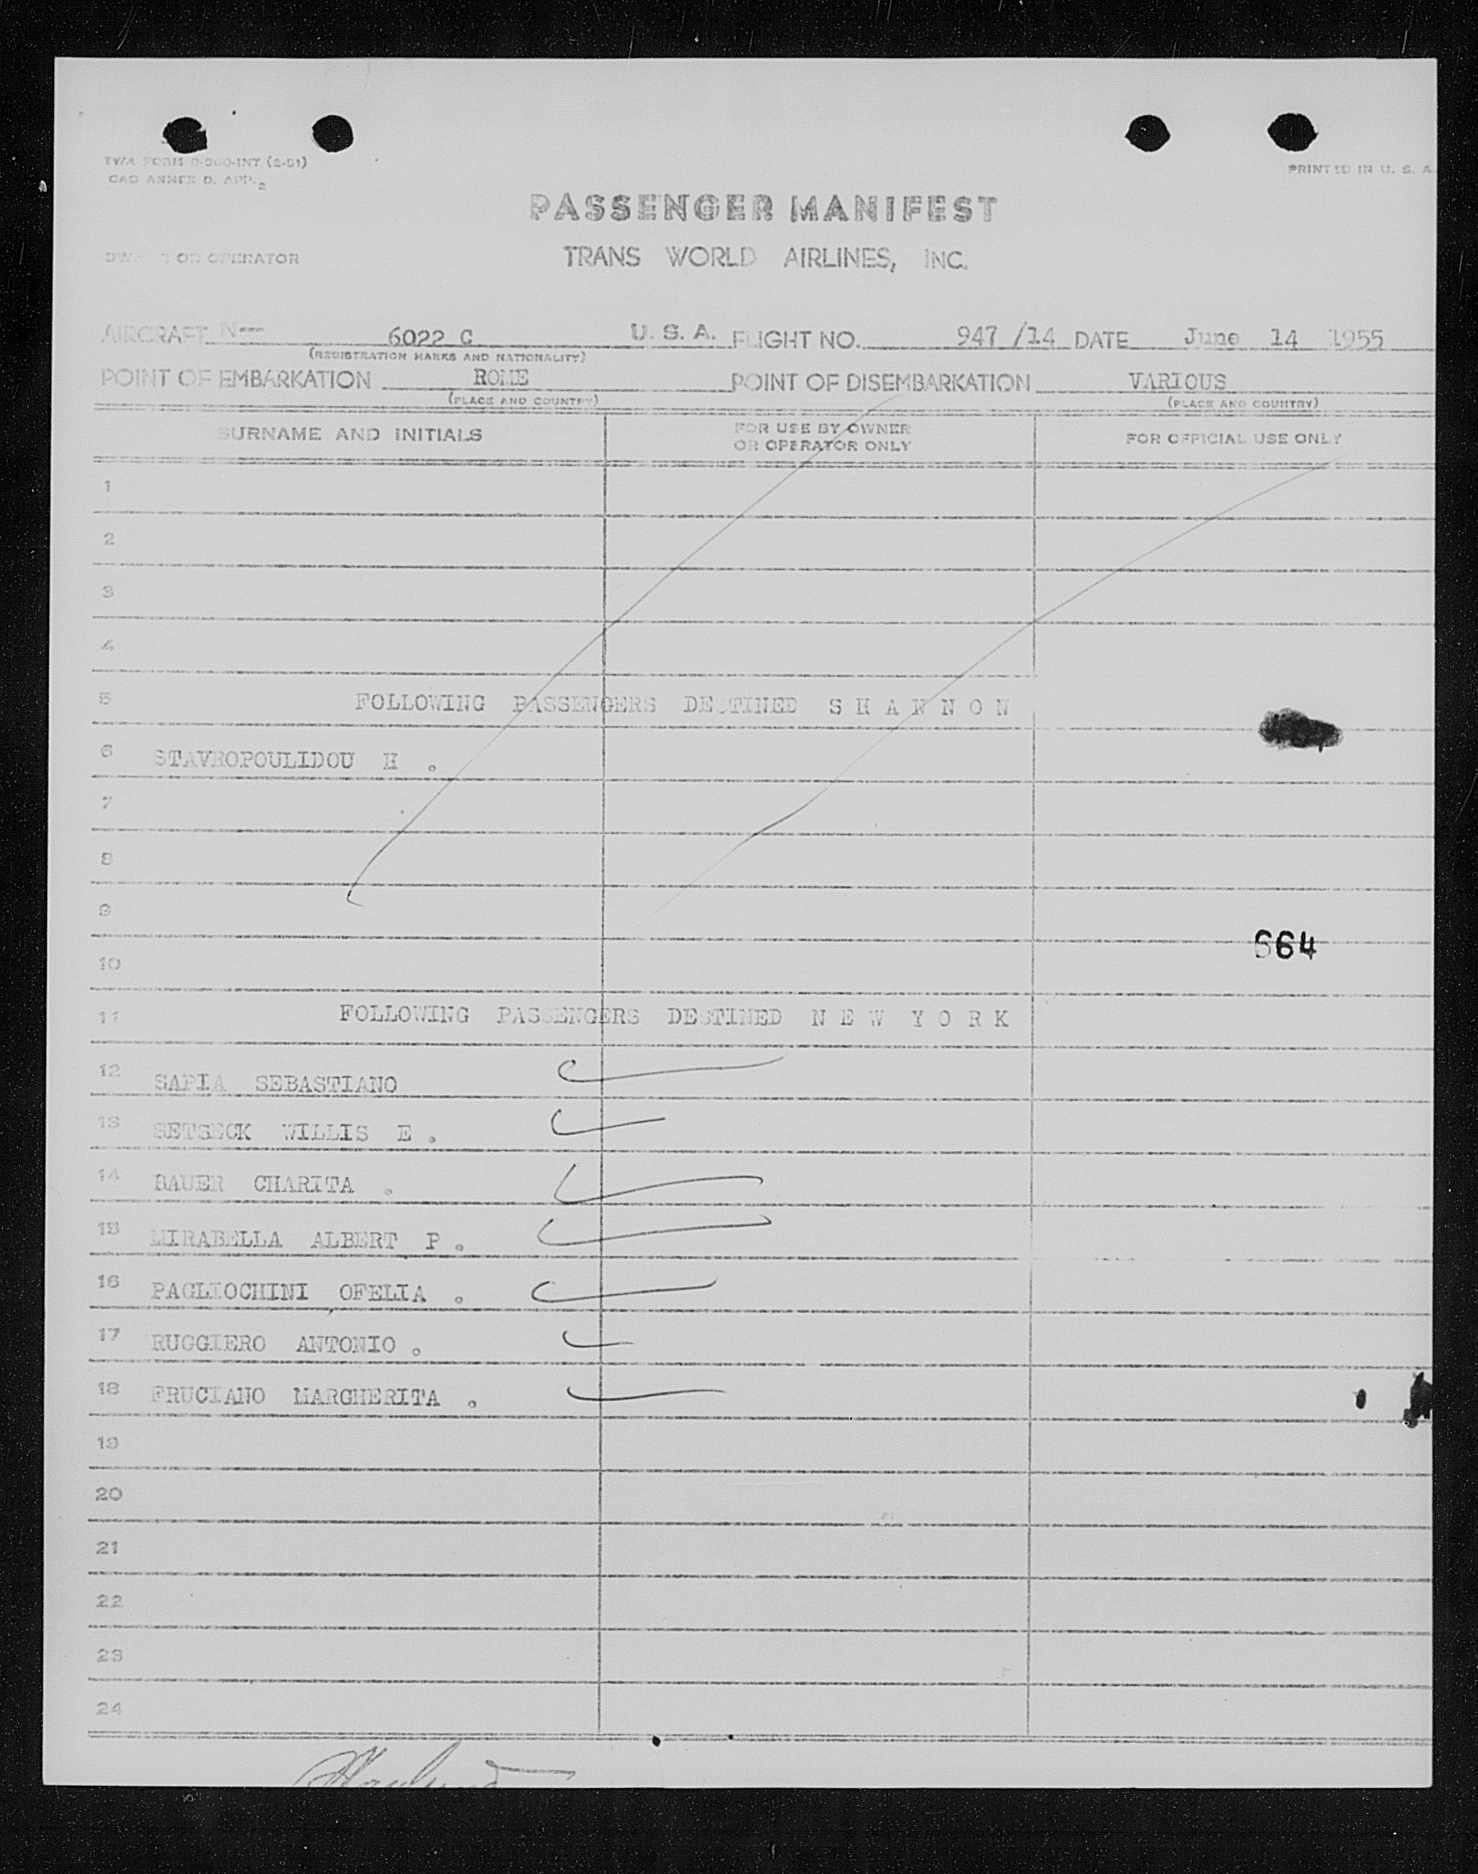 TWA FORM 0-200-INT (2-51)
CAO ANNEX D. APP. 2
PRINTED IN U. S. A.
PASSENGER MANIFEST
OR OPERATOR
TRANS WORLD AIRLINES, INC.
AIRCRAFT N-- 6022 C U. S. A. FLIGHT NO. 947 /14 DATE June 14 1955
(REGISTRATION MARKS AND NATIONALITY)
POINT OF EMBARKATION ROME POINT OF DISEMBARKATION VARIOUS
(PLACE AND COUNTRY) (PLACE AND COUNTRY)
SURNAME AND INITIALS FOR USE BY OWNER
OR OPERATOR ONLY FOR OFFICIAL USE ONLY
1
2
3
4
5 FOLLOWING PASSENGERS DESTINED S H A N N O N
6 STAVROPOULIDOU H .
7
8
9
664
10
11 FOLLOWING PASSENGERS DESTINED N E W Y O R K
12 SAPIA SEBASTIANO
13 SETSECK WILLIS E .
14 BAUER CHARITA .
15 MIRABELLA ALBERT P .
16 PAGLIOCHINI OFELIA .
17 RUGGIERO ANTONIO .
18 FRUCIANO MARGHERITA .
19
20
21
22
23
24